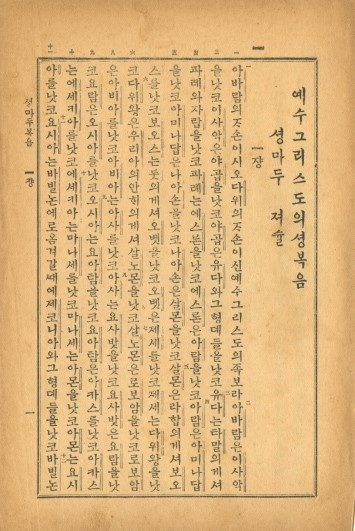 예수그리스도의셩복음
셩마두 져슐
一쟝
아바람의ᄌᆞ손이시오다위의ᄌᆞ손이신예수그리스도의족보라아바람은이사악
을낫코이사악은야곱을낫코야곱은유다와그형뎨들을낫코유다는타말의게셔
파레와자람을낫코파레는에스론을낫코에스론은아람을낫코아람은아미나답
을낫코아미나답은나아손을낫코나아손은살몬을낫코살몬은라합의게셔보오
스를낫코보오스는룻의게셔오벳을낫코오벳은졔세를낫코졔세는다위왕을낫
코다위왕은우리아의안히의게셔살노몬을낫코살노몬은로보암을낫코로보암
은아비아를낫코아비아는아사를낫코아사는요사밧을낫코요사밧은요람을낫
코요람은오시아를낫코오시아는요아람을낫코요아람은아카스를낫코아카스
는에세키아를낫코에세키아는마나세를낫코마나세는아몬을낫코아몬은요시
아를낫코요시아는바빌논에로옴겨갈때에졔코니아와그형뎨들을낫코바빌논
셩마두복음 一쟝 一